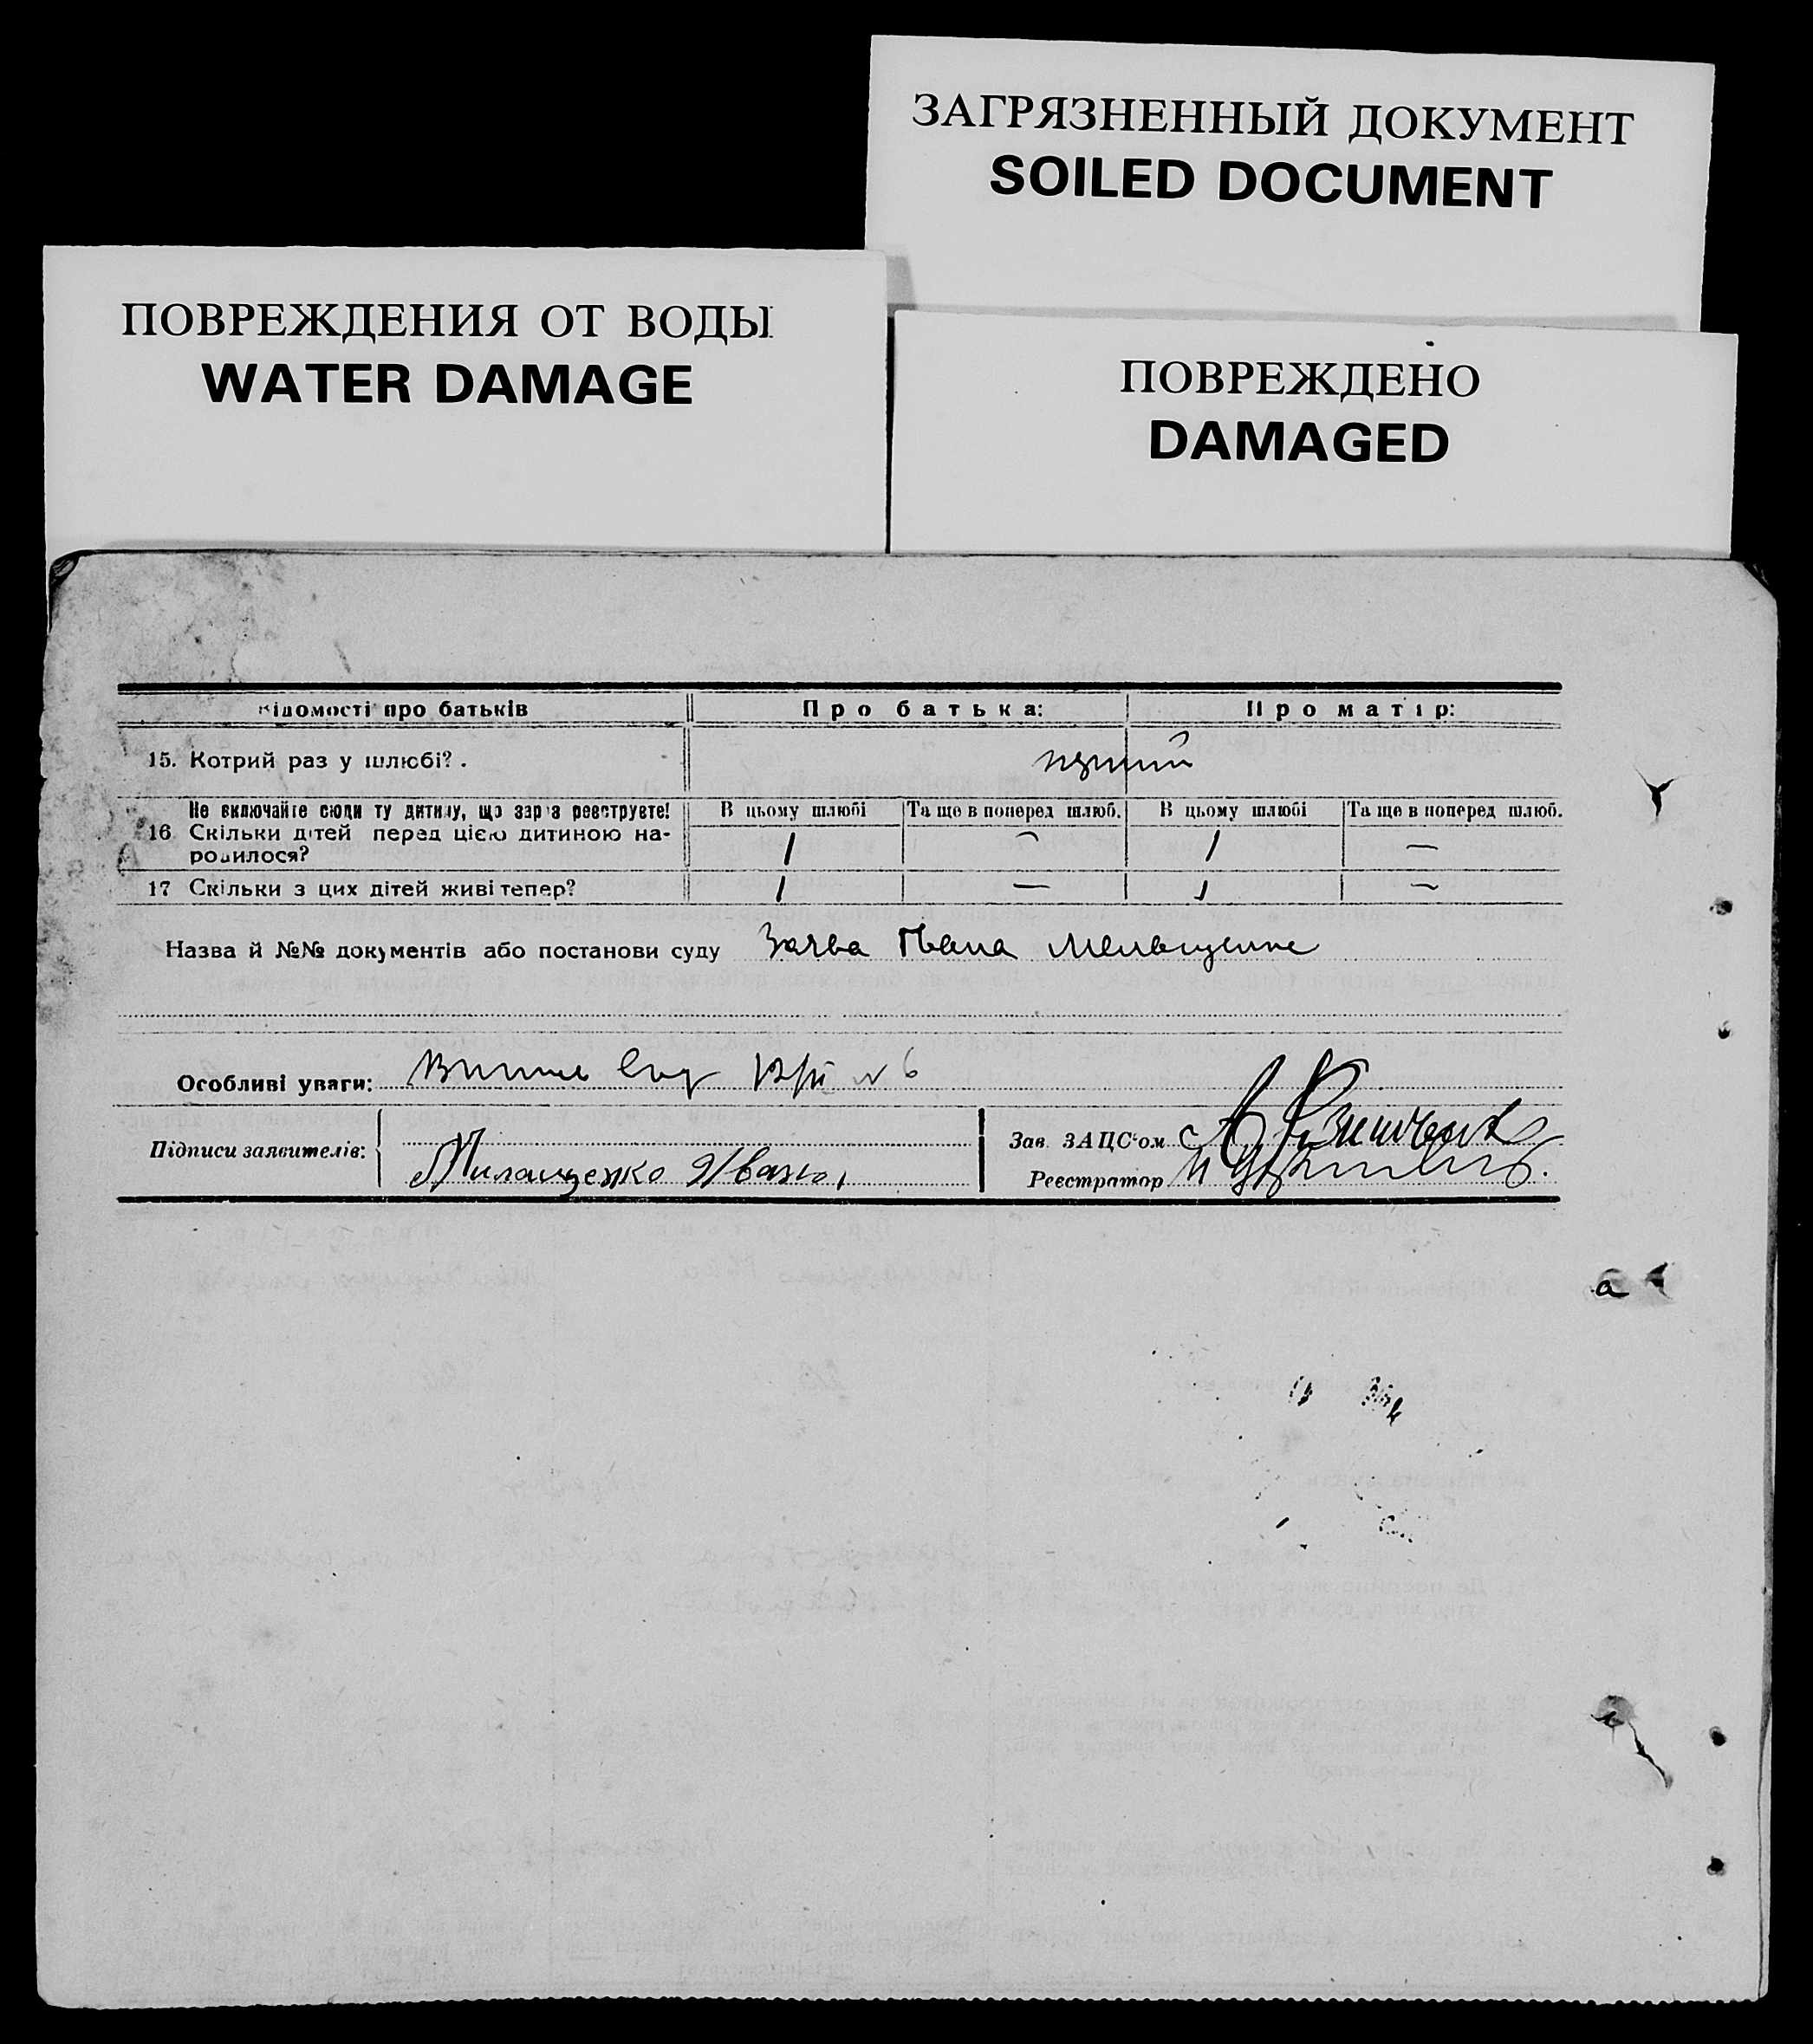 ЗАГРЯЗНЕННЫЙ ДОКУМЕНТ
SOILED DOCUMENT
ПОВРЕЖДЕНИЯ ОТ ВОДЫ
WATER DAMAGE
ПОВРЕЖДЕНО
DAMAGED
Відомості про батьків Про батька: Про матір:
15. Котрий раз у шлюбі?.
Не включайте сюди ту дитину, що зараз реєструєте! В цьому шлюбі Та ще в поперед шлюб. В цьому шлюбі Та ще в поперед шлюб.
16 Скільки дітей перед цією дитиною на-
родилося? 1 — 1 —
17 Скільки з цих дітей живі тепер? 1 — 1 —
Назва й №№ документів або постанови суду Заява
Особливі уваги: № 6
Підписи заявителів: Зав. ЗАЦС'ом
Реєстратор